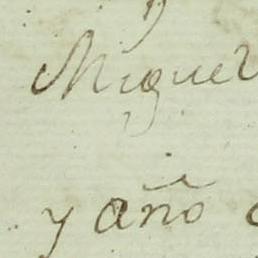 Miguel
y año